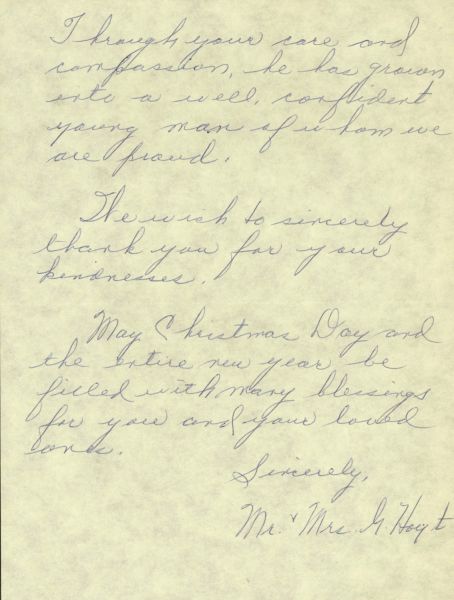 Through your care and
compassion, he has grown
into a well, confident
young man of whom we
are proud.
We wish to sincerely
thank you for your
kindnesses.
May Christmas Day and
the entire new year be
filled with many blessings
for you and your loved
ones.
Sincerely,
Mr. & Mrs. G. Hoyt